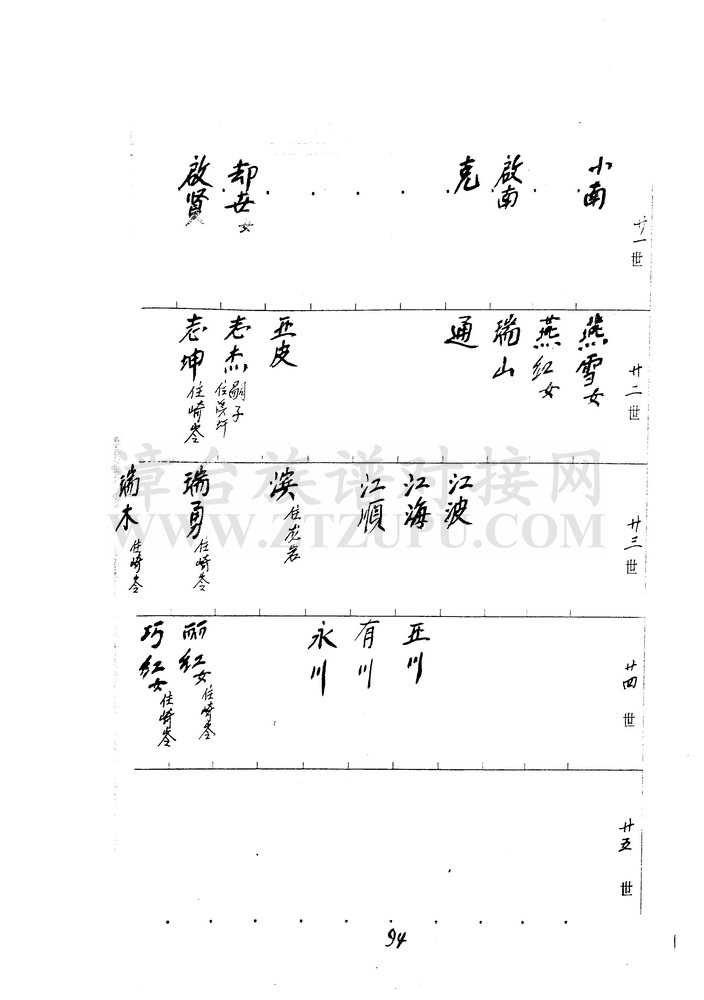 廿一世
小南
啟南
克
却女
啟賢
廿二世
燕雪女
燕红女
瑞山
通
亚皮
志杰 嗣子
志坤 住崎岺
廿三世
江波
江海
江順
滨 住龙岩
瑞勇 住崎岺
瑞木 住崎岺
廿四世
亚川
有川
永川
丽红女 住崎岺
巧红女 住崎岺
廿五世
94
漳台族谱对接网
WWW.ZTZUPU.COM